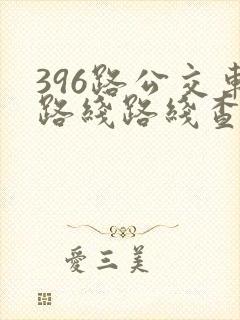 396路公交車
路綫路綫查
愛三美